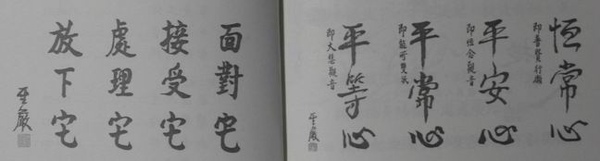 恒常心
即普賢行願
平安心
即恒念觀音
平常心
即能所雙
平等心
即大悲觀音
聖嚴
面對它
接受它
處理它
放下它
聖嚴